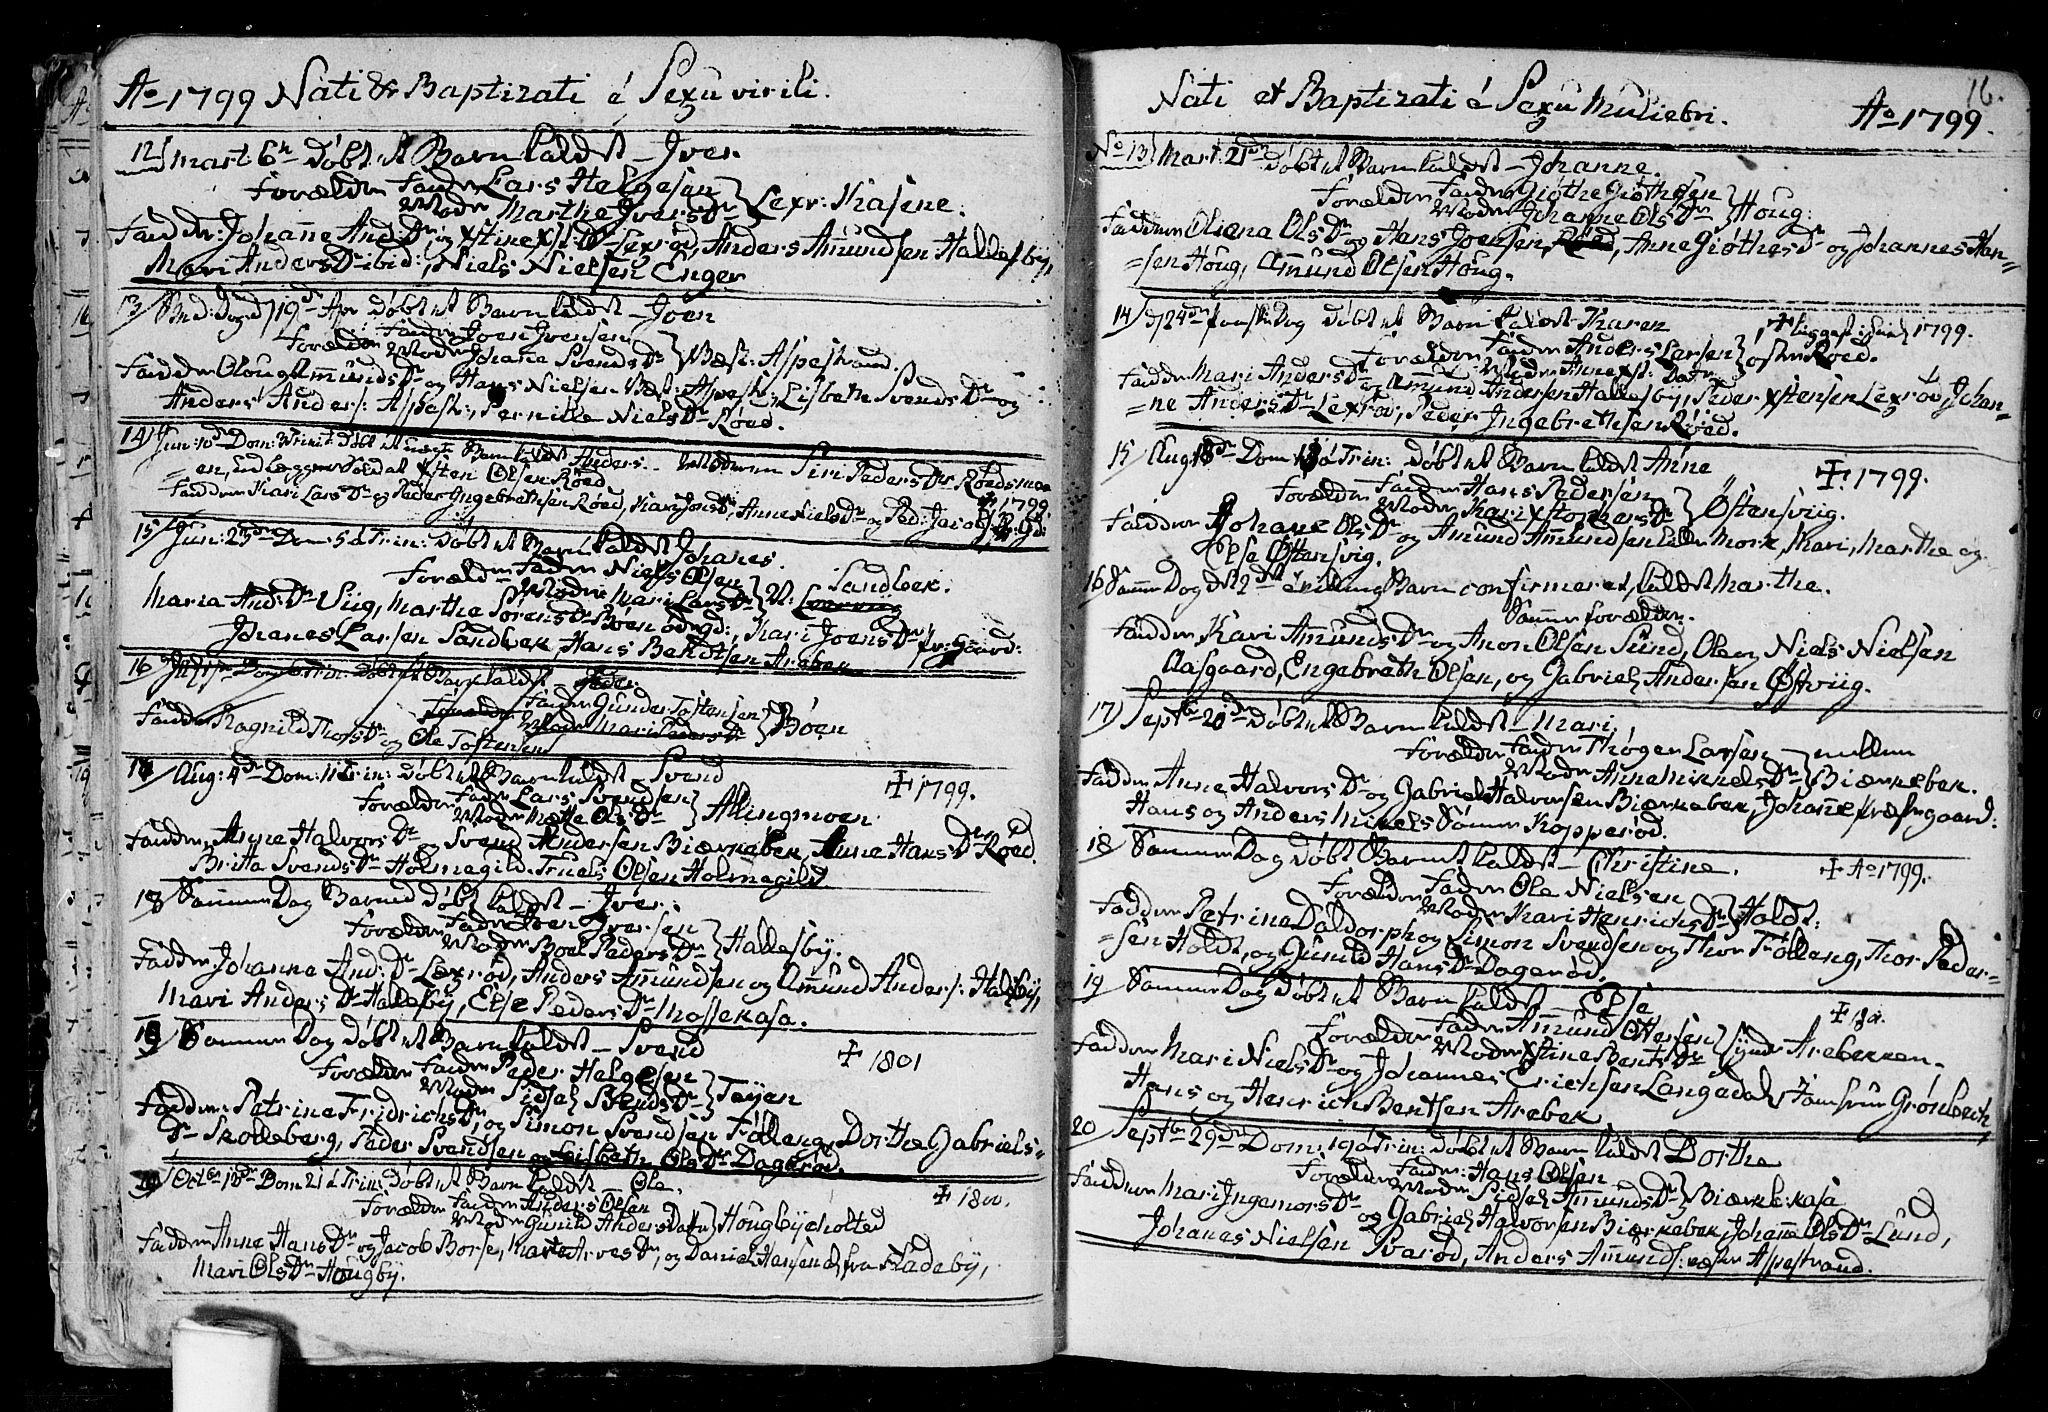 Ao 1799 Nati & Baptizati á Sexu virili.
12/ Mart: 6te Døbt et Barn kaldet – Iver.
Forældre Fader Lars Helgesen
Moder Marthe Ivers Dr Lexr: Kasene.
Faddere: Johañe And: Dr, og Xstine Xst: Dr Lexrød, Anders Amundsen Hallesby,
Mari Anders Dr ibid:, Niels Nielsen Enger
13/ Dag d 19de Apr Døbt et Barn kaldet – Joen
Forældre Fader Joen Iversen
Moder Johane Svends Dr Væst: Aspestrand.
Faddere Oloug Amunds Dr og Hans Nielsen Væst: Aspest:, Lisbeth Svends Dr og
Anders Anders: Aspestr:, Pernille Niels Dr Røed.
14/ Jun: Dom: Trinit: Døbt et Barn kaldet Anders. Moderen Siri Peders Dr Roedsmoe
en, udlægger Soldat Xsten Olsen Røed.
Faddere Kari Lars Dr og Peder Ingebrethsen Røed, Kari Joens Dr, Anne Niels Dr og Ped: Jacobs:
✝ 1799
15/ Jun: 23de Dom: 5 á Trin: Døbt et Barn kaldet Johanes.
Forældre Fader Niels Olsen
Moder Mari Lars Dr Sandbek.
Maria And: Dr Siig, Marthe Sørens Dr Bøen ødegd:, Kari Joens Dr pr: Gaard:
Johanes Larsen Sandbek, Hans Bendtsen Arebek
16 Døbt et Barn kaldet – Peder
Forældre Fader Gunder Tostensen
Moder Mari Peders Dr Bøen
Faddere Ragnild Thors Dr og Ole Tostensen
Aug: 4de Dom: 11 Trin: Døbt et Barn kaldet – Svend
✝ 1799.
Forældre Fader Lars Svendsen
Moder Mette Ols Dr Alingmoen.
Faddere, Anne Halvors Dr og Svend Andersen Biærkebek, Anne Hans Dr Røed.
Britta Svends Dr Holmegild. Truels Olsen Holmegild
18 Sammer Dag Barned Døbt kaldet – Iver:
Forældre Fader Iver Iversen
Moder Boel Peders Dr Hallesby:
Faddere Johanna And: Dr Lexrød, Anders Amundsen og Amund Anders: Hallesby,
Mari Anders Dr Hallesby, Else Peders Dr Mossekasa.
19 Sammer Dag Døbt et Barn kaldet – Svend
✝ 1801
Forældre Fader Peder Helgesen
Moder Sidsel Svends Dr Tøyen
Faddere: Petrine Fridrichs Dr, og Simon Svendsen Fölleng, Dorthe Gabriels=
Dr Skolleberg, Peder Svendsen og Lisbeth Ols Dr Dagerød.
Octbr 13de Dom 21 á Trin: Døbt et Barn kaldet – Ole.
✝ 1800.
Forældre Fader Anders Olsen
Moder Gunild Anders Datr Hougbyeholted
Faddere Anne Hans Dr og Jacob Borse, Marte Arves Dr, og Daniel Hansen fra Fladeby,
Mari Ols Dr Hougby.
16.
Nati et Baptizati á Sexu Muliebri. Ao 1799.
No 13/ Mart: 21de Døbt et Barn kaldet – Johanne.
Forældre Fader Giøthe Giøthesen
Moder Johanne Ols Dr Houg:
Faddere Oliana Ols Dr og Hans Joensen Røed, Anne Giøthes Dr og Johannes Han=
=sen Houg, Amund Olsen Houg.
14/ 24de Paaske Dag Døbt et Barn kaldet Karen
✝ 1799.
Forældre Fader Anders Larsen
Moder Anne Xst: Datr Østen Røed.
Faddere Mari Anders Dr og Amund Andersen Hallesby, Peder Xstensen Lexrød, Johan=
=ne Anders Dr Lexrød, Peder Ingebrethsen Røed.
15 Aug 18de Dom 13 á Trin: Døbt et Barn kaldet Anne
✝ 1799.
Forældre Fader Hans Pedersen
Moder Kari Xstophers Dr Østensviig.
Faddere Johane Ols Dr og Amund Amundsen Lille Mork, Kari, Marthe og
Else Østensvig.
16 Samme Dag det 2de tvilling Barn confirmeret, kaldet Marthe.
Samme forældre.
Faddere Kari Amunds Dr og Amon Olsen Sund, Ole og Niels Nielsen
Aasgaard, Engebreth Olsen, og Gabriel Andersen Østviig.
17/ Septbr 20de Døbt et Barn kaldet – Mari,
Forældre Fader Thøger Larsen
Moder Anne Mikkels Dr mellem Biærkebek.
Faddere Anne Halvors Dr og Gabriel Halvorsen Biærkebek, Johañe Præstegaard:
Hans og Anders Mikels Sønner Kopperød.
18 Sammer Dag Døbt Barnet kaldet – Christine.
✝ Ao 1799.
Forældre Fader Ole Nielsen
Moder Kari Henrichs Dr Holdt:
Faddere Petrine Daldorph og Simon Svendsen og Thor Fölleng, Thor Peder=
=sen Holdt, og Gunild Hans Dr Dagerød.
19 Sammer Dag Døbt et Barn kaldet – Else
✝ 180
Forældre Fader Amund Ottersen
Moder Xstine Bents Dr Synder Arebekken.
Faddere Mari Niels Dr og Johannes Erichsen Langedal, Jomfrue Grønbech,
Hans og Henrich Bentsen Arebek
20 Septbr 29de Dom: 19 á Trin: Døbt et Barn kaldet Dorthe
Forældre Fader: Hans Olsen
Moder Sidsel Amunds Dr Biærkekasa
Faddere Mari Ingemors Dr og Gabriel Halvorsen Biærkebek, Johañe Ols Dr Lund,
Johanes Nielsen Svarød, Anders Amunds: væster Aspestrand.